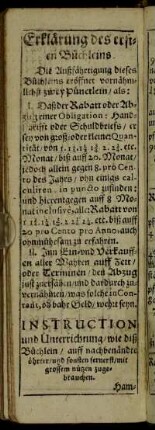 Erklärung des ersten
en Büchleins
Die Außfährtigung dieses
Büchleins eröffnet vornähm-
lichst zwey Pünctlein / als:
I. Daß der Rabatt oder Ab-
zug einer Obligation / Hand-
schrifft oder Schuldbrieffs / er
sey von groß- oder kleiner Quan-
tität / von 1. 1¼ 1½ 2. 2½. etc.
Monat / biß auff 20. Monat /
jedoch allein gegen 8. pro Cen-
to des Jahrs / von
in puncto zufinden:
und hieentgegen auff 8 Mo-
nat Rabatt von
1. 1¼ 1½ 2 2½ etc. biß auff
20 pro Cento pro Anno / auch
ohnmühesam zu erfahren.
ii. Zun Ein- und Verkauff-
en aller Wahren auff Zeit /
oder Terminen / den Abzug
just zuersähen / und dardurch zu
vernähmen / was solche in Con-
tant, oder bahr Geld / wehrt seyn.
INSTRUCTION
und Unterrichtung / wie diß
Büchlein / auff nachbenändte
öhrter / und sonsten fernerst / mit
grossem nutzen zuge-
brauchen.
Ham-